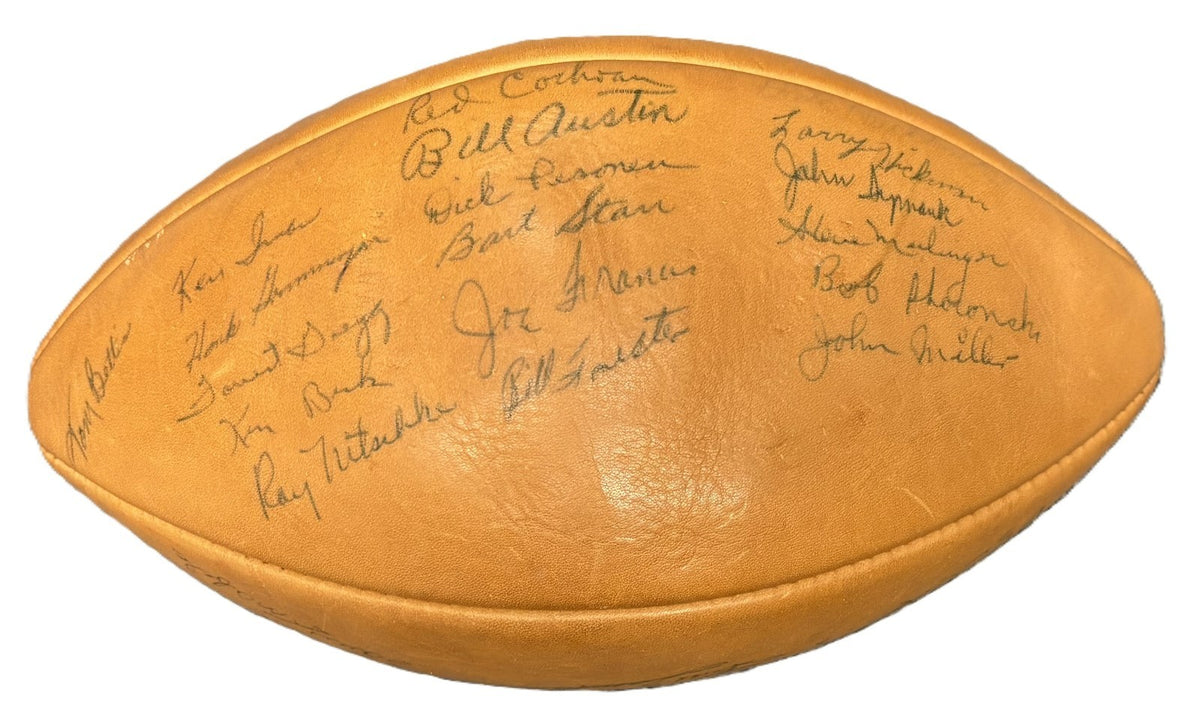 Tom Bettis
Ken Iman
Hank Gremminger
Forrest Gregg
Ken Beck
Ray Nitschke
Red Cochran
Bill Austin
Dick Pesonen
Bart Starr
Joe Francis
Bill Forester
Larry Hickman
John Symank
Steve Meilinger
Bob Skoronski
John Miller